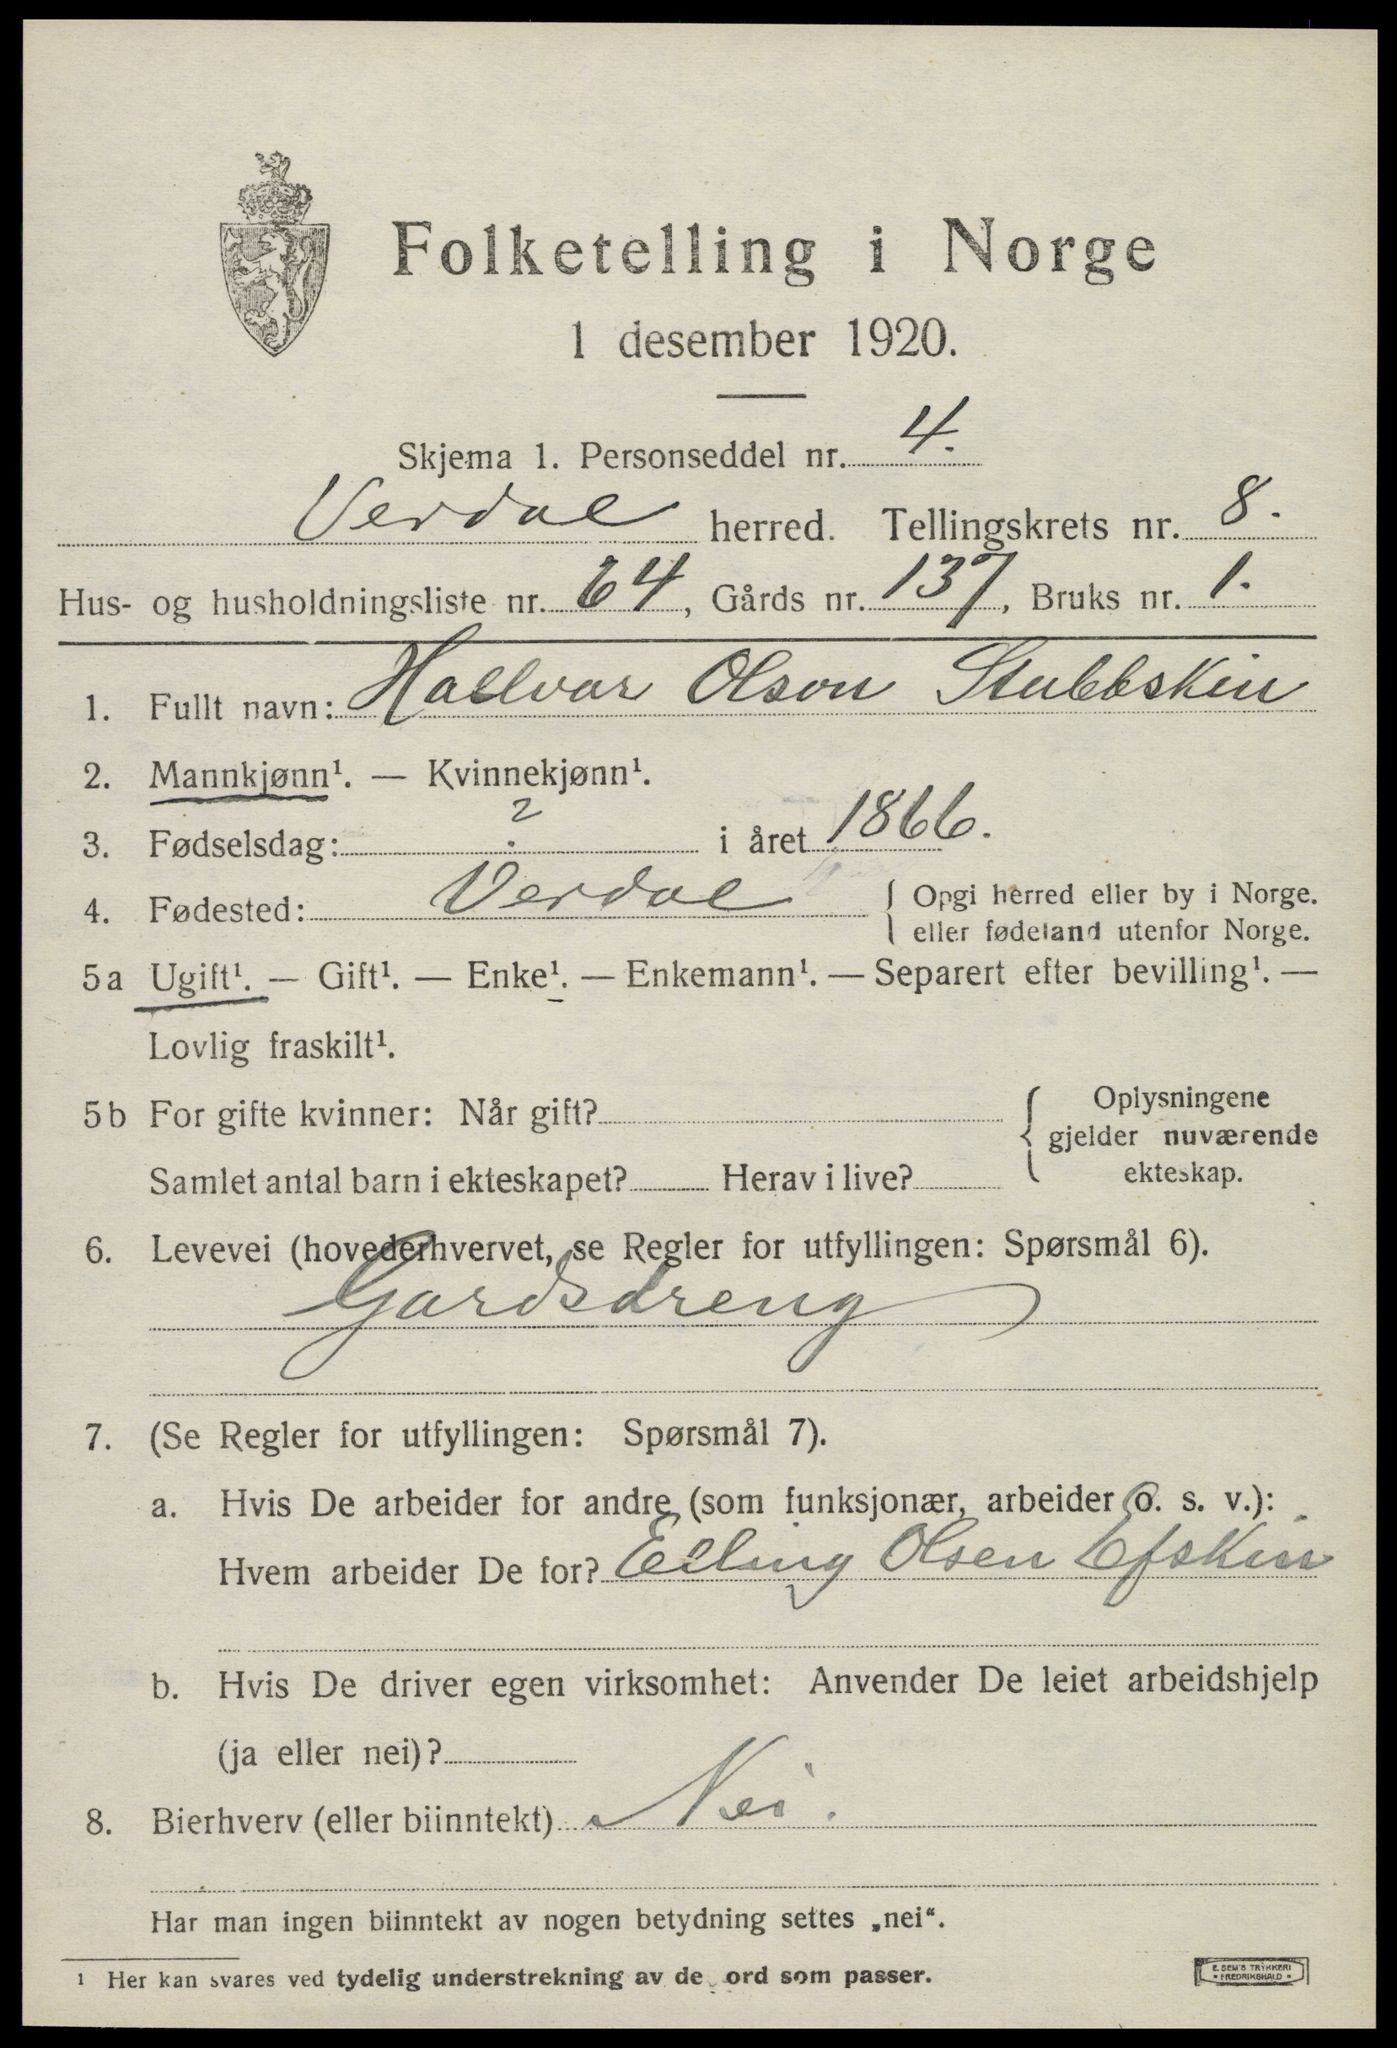 Folketelling i Norge
1 desember 1920.
Skjema 1. Personseddel nr. 4.
Verdal herred. Tellingskrets nr. 8.
Hus- og husholdningsliste nr. 64, Gårds nr. 137, Bruks nr. 1.
1. Fullt navn: Hallvar Olson Stubbskin
2. Mannkjønn¹. — Kvinnekjønn¹.
3. Fødselsdag: ? i året 1866.
4. Fødested: Verdal { Opgi herred eller by i Norge.
eller fødeland utenfor Norge.
5a Ugift¹. — Gift¹. — Enke¹. — Enkemann¹. — Separert efter bevilling¹. —
Lovlig fraskilt¹.
5b For gifte kvinner: Når gift? { Oplysningene
gjelder nuværende
Samlet antal barn i ekteskapet? Herav i live? ekteskap.
6. Levevei (hovederhvervet, se Regler for utfyllingen: Spørsmål 6).
Gardsdreng
7. (Se Regler for utfyllingen: Spørsmål 7).
a. Hvis De arbeider for andre (som funksjonær, arbeider o. s. v.):
Hvem arbeider De for? Elling Olsen Efskin
b. Hvis De driver egen virksomhet: Anvender De leiet arbeidshjelp
(ja eller nei)?
8. Bierhverv (eller biinntekt) Nei.
Har man ingen biinntekt av nogen betydning settes „nei“.
¹ Her kan svares ved tydelig understrekning av de ord som passer.
E. SEM'S TRYKKERI
• FREDRIKSHALD •